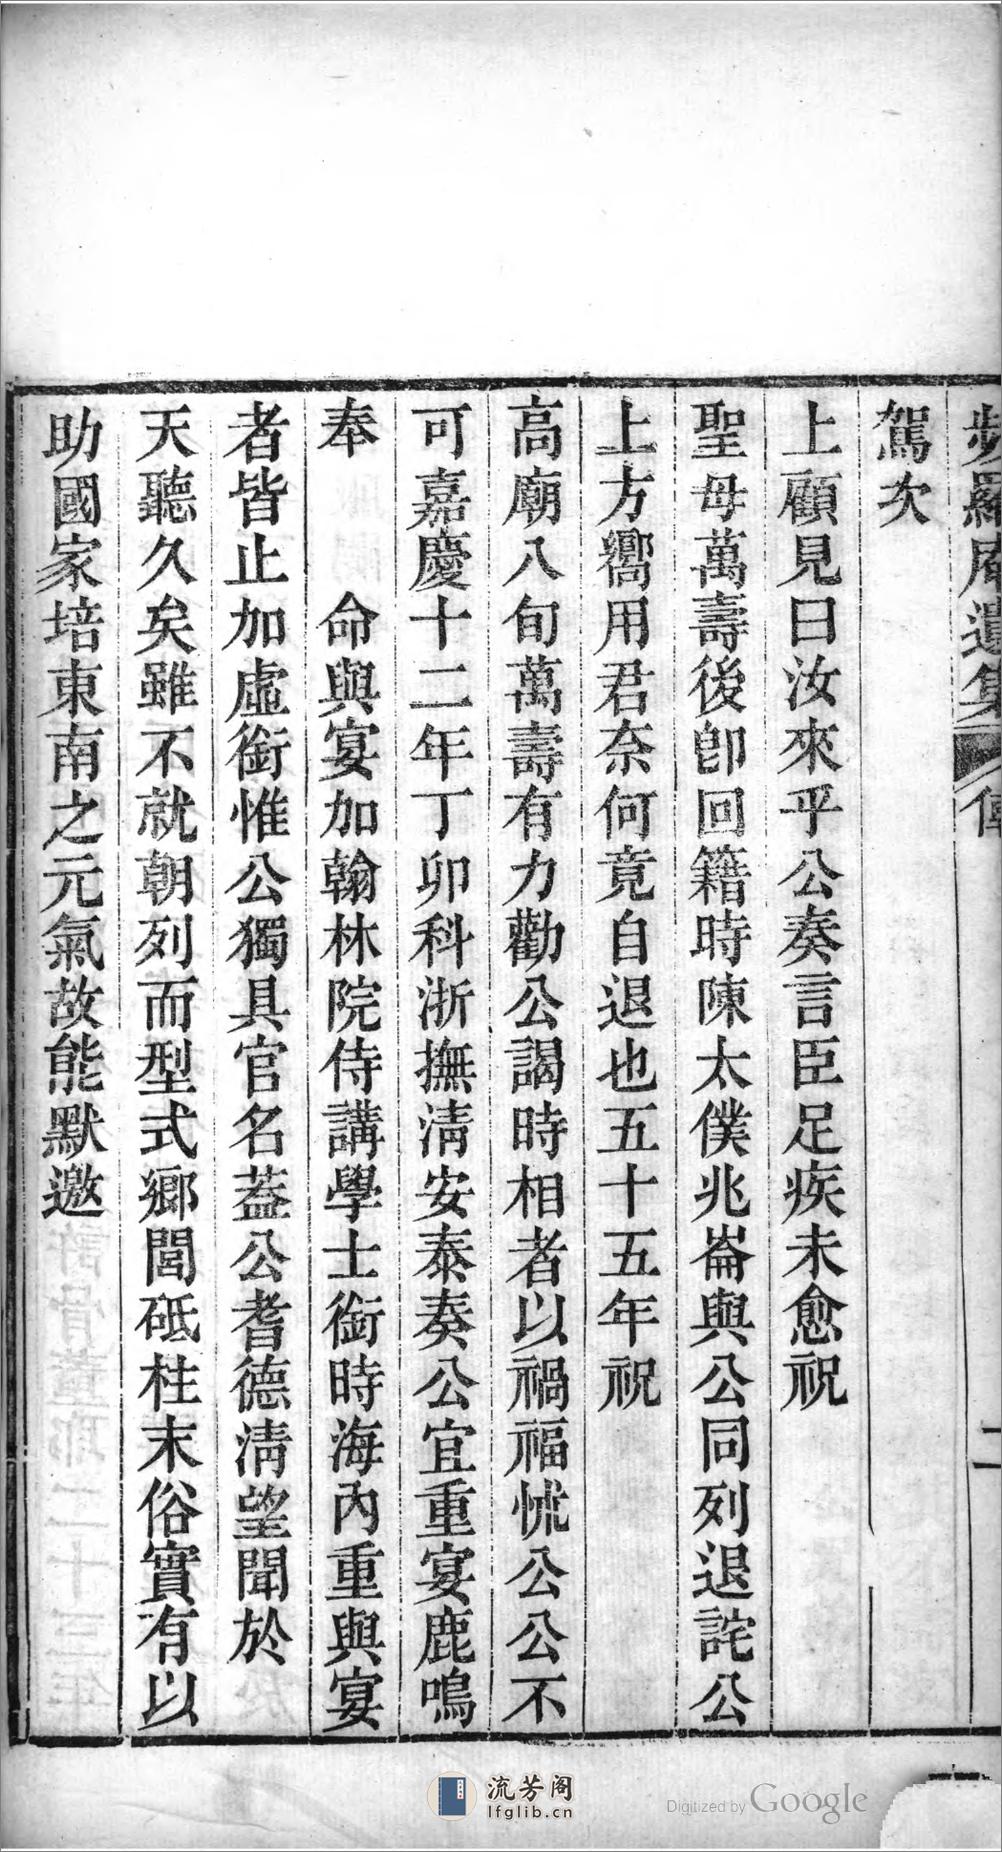 頻羅庵遺集 傳 二
駕次
上顧見曰汝來乎公奏言臣足疾未愈祝
聖母萬壽後卽回籍時陳太僕兆崙與公同列退詫公
上方嚮用君奈何竟自退也五十五年祝
高廟八旬萬壽有力勸公謁時相者以禍福怵公公不
可嘉慶十二年丁卯科浙撫淸安泰奏公宜重宴鹿鳴
奉　　命與宴加翰林院侍講學士銜時海內重與宴
者皆止加虛銜惟公獨具官名蓋公耆德淸望聞於
天聽久矣雖不就朝列而型式鄉閭砥柱末俗實有以
助國家培東南之元氣故能默邀
流芳阁
lfglib.cn
Digitized by Google